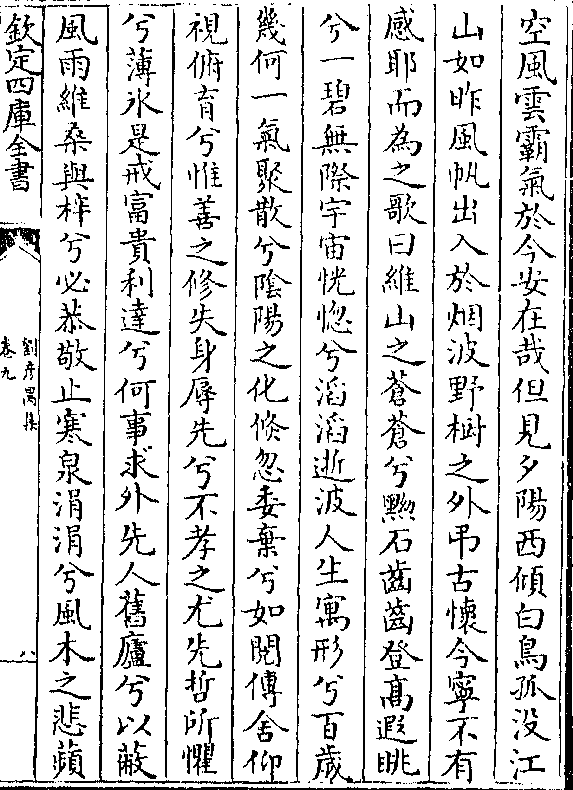 空風雲霸氣於今安在哉但見夕陽西傾白鳥孤没江
山如昨風帆出入於烟波野樹之外弔古懷今寧不有
感耶而為之歌曰維山之蒼蒼兮黝石齒齒登高遐眺
兮一碧無際宇宙恍惚兮滔滔逝波人生寓形兮百歲
幾何一氣聚散兮陰陽之化倐忽委棄兮如閱傳舍仰
視俯育兮惟善之修失身辱先兮不孝之尤先哲所懼
兮薄氷是戒富貴利達兮何事求外先人舊廬兮以蔽
風雨維桑與梓兮必恭敬止寒泉涓涓兮風木之悲蘋
欽定四庫全書
劉彥昺集
卷九
八